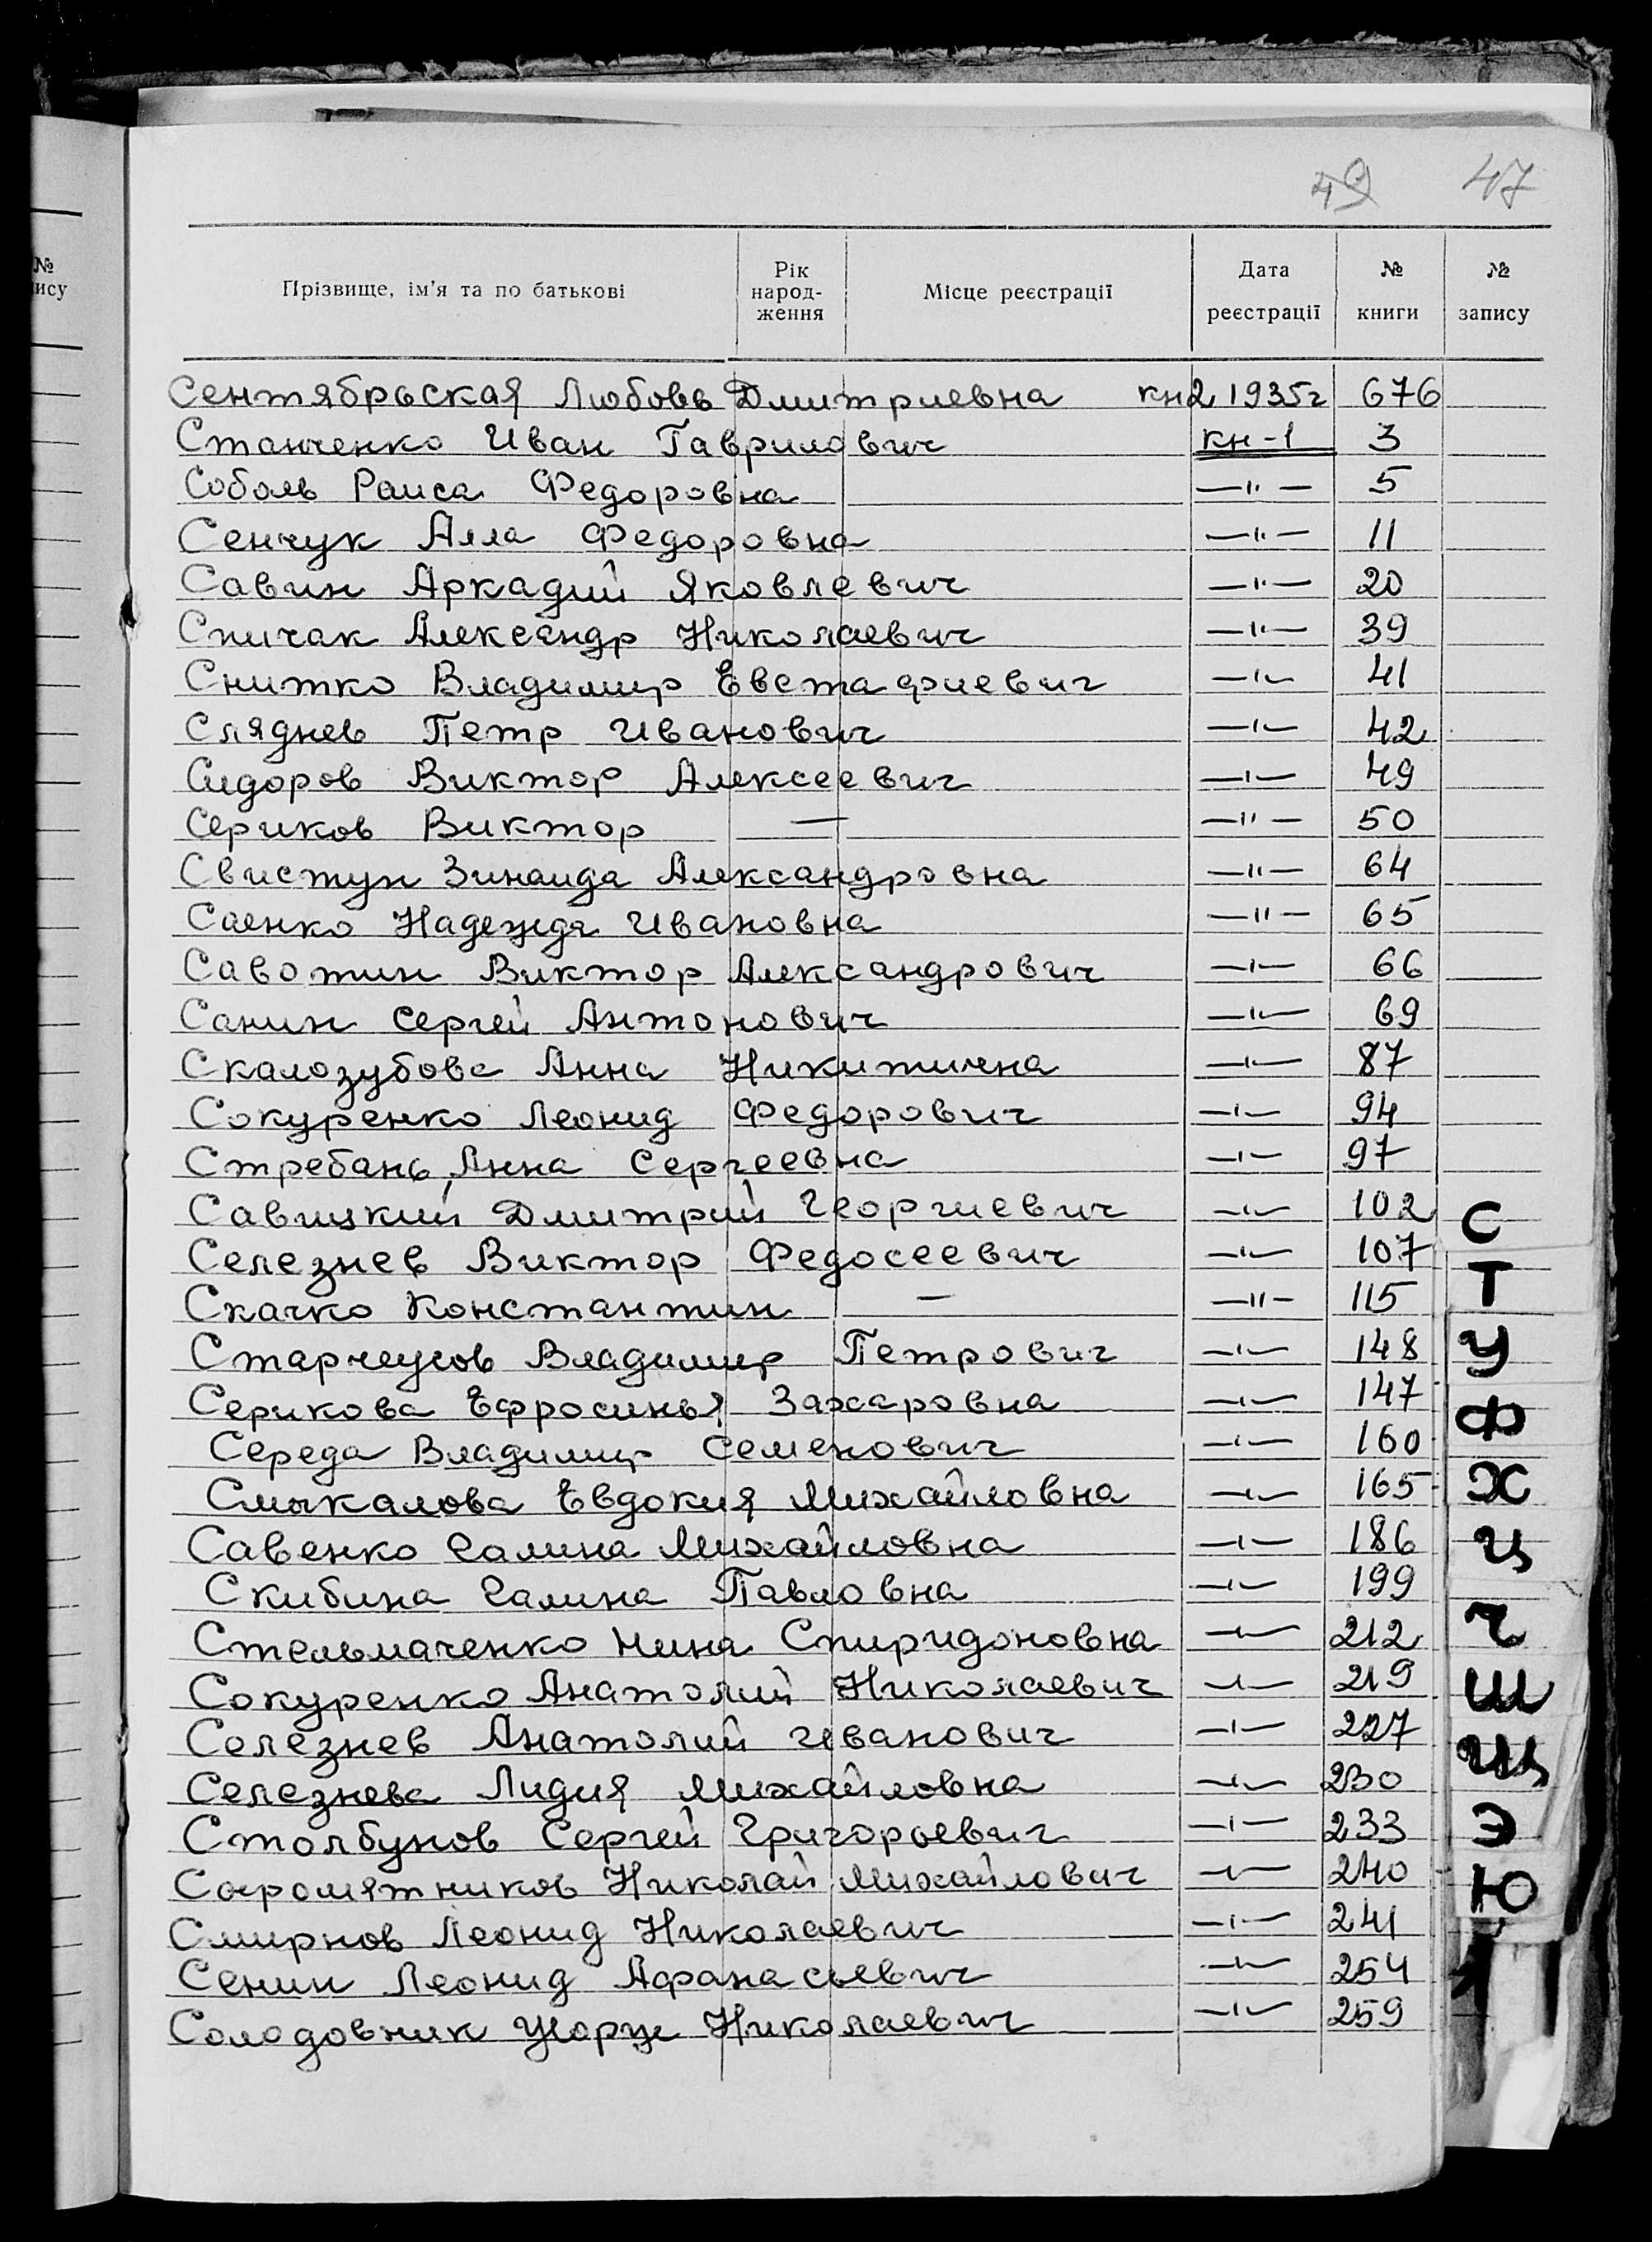 49 47
№ пису
Прізвище, ім'я та по батькові Рік народ-ження Місце реєстрації Дата реєстрації № книги № запису
Сентябрьская Любовь Дмитриевна кн2 1935г 676
Станченко Иван Гаврилович кн-1 3
Соболь Раиса Федоровна —"— 5
Сенчук Алла Федоровна —"— 11
Савин Аркадий Яковлевич —"— 20
Спичак Александр Николаевич —"— 39
Снитко Владимир Евстафиевич —"— 41
Сляднев Петр Иванович —"— 42
Сидоров Виктор Алексеевич —"— 49
Сериков Виктор — —"— 50
Свистун Зинаида Александровна —"— 64
Саенко Надежда Ивановна —"— 65
Савотин Виктор Александрович —"— 66
Санин Сергей Антонович —"— 69
Скалозубова Анна Никитична —"— 87
Сокуренко Леонид Федорович —"— 94
Стребань Анна Сергеевна —"— 97
Савицкий Дмитрий Георгиевич —"— 102
Селезнев Виктор Федосеевич —"— 107
Скачко Константин — —"— 115
Старчеусов Владимир Петрович —"— 148
Серикова Ефросинья Захаровна —"— 147
Середа Владимир Семенович —"— 160
Смыкалова Евдокия Михайловна —"— 165
Савенко Галина Михайловна —"— 186
Скибина Галина Павловна —"— 199
Стельмаченко Нина Спиридоновна —"— 212
Сокуренко Анатолий Николаевич —"— 219
Селезнев Анатолий Иванович —"— 227
Селезнева Лидия Михайловна —"— 230
Столбунов Сергей Григорьевич —"— 233
Сыромятников Николай Михайлович —"— 240
Смирнов Леонид Николаевич —"— 241
Сенин Леонид Афанасьевич —"— 254
Солодовник Николаевич —"— 259
С
Т
У
Ф
Х
Ц
Ч
Ш
Щ
Э
Ю